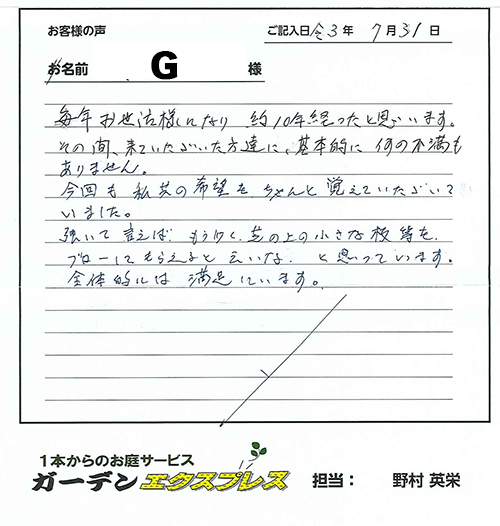 お客様の声
ご記入日 令3年 7月31日
お名前 G 様
毎年お世話様になり 約10年経ったと思います。
その間、来ていただいた方達に、基本的に 何の不満も
ありません。
今回も 私共の希望を、ちゃんと 覚えていただいて
いました。
強いて 言えば もう少く、芝の上の小さな枝等を、
ブローしてもらえると いいな、と思っています。
全体的には 満足しています。
1本からのお庭サービス
ガーデンエクスプレス
担当： 野村 英栄